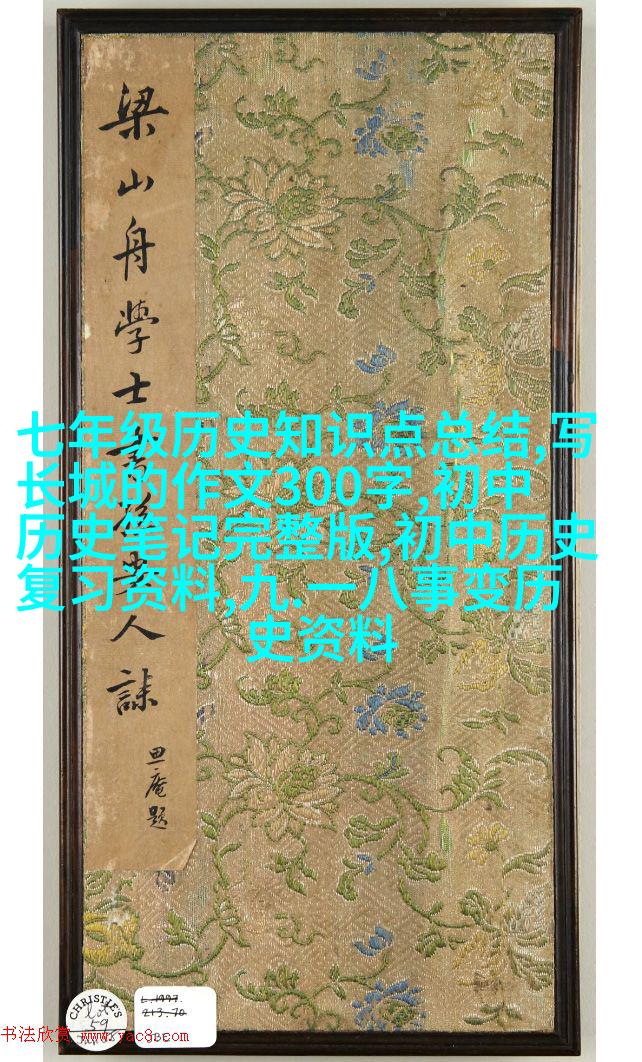 梁山舟學士書
人誄
庵題
七年级历史知识点总结,写
长城的作文300字,初中
历史笔记完整版,初中历史
复习资料,九.一八事变历
史资料
CHRISTIE'S
Lot
59
L.1997.
213.70
书法欣赏 www.yac8.com